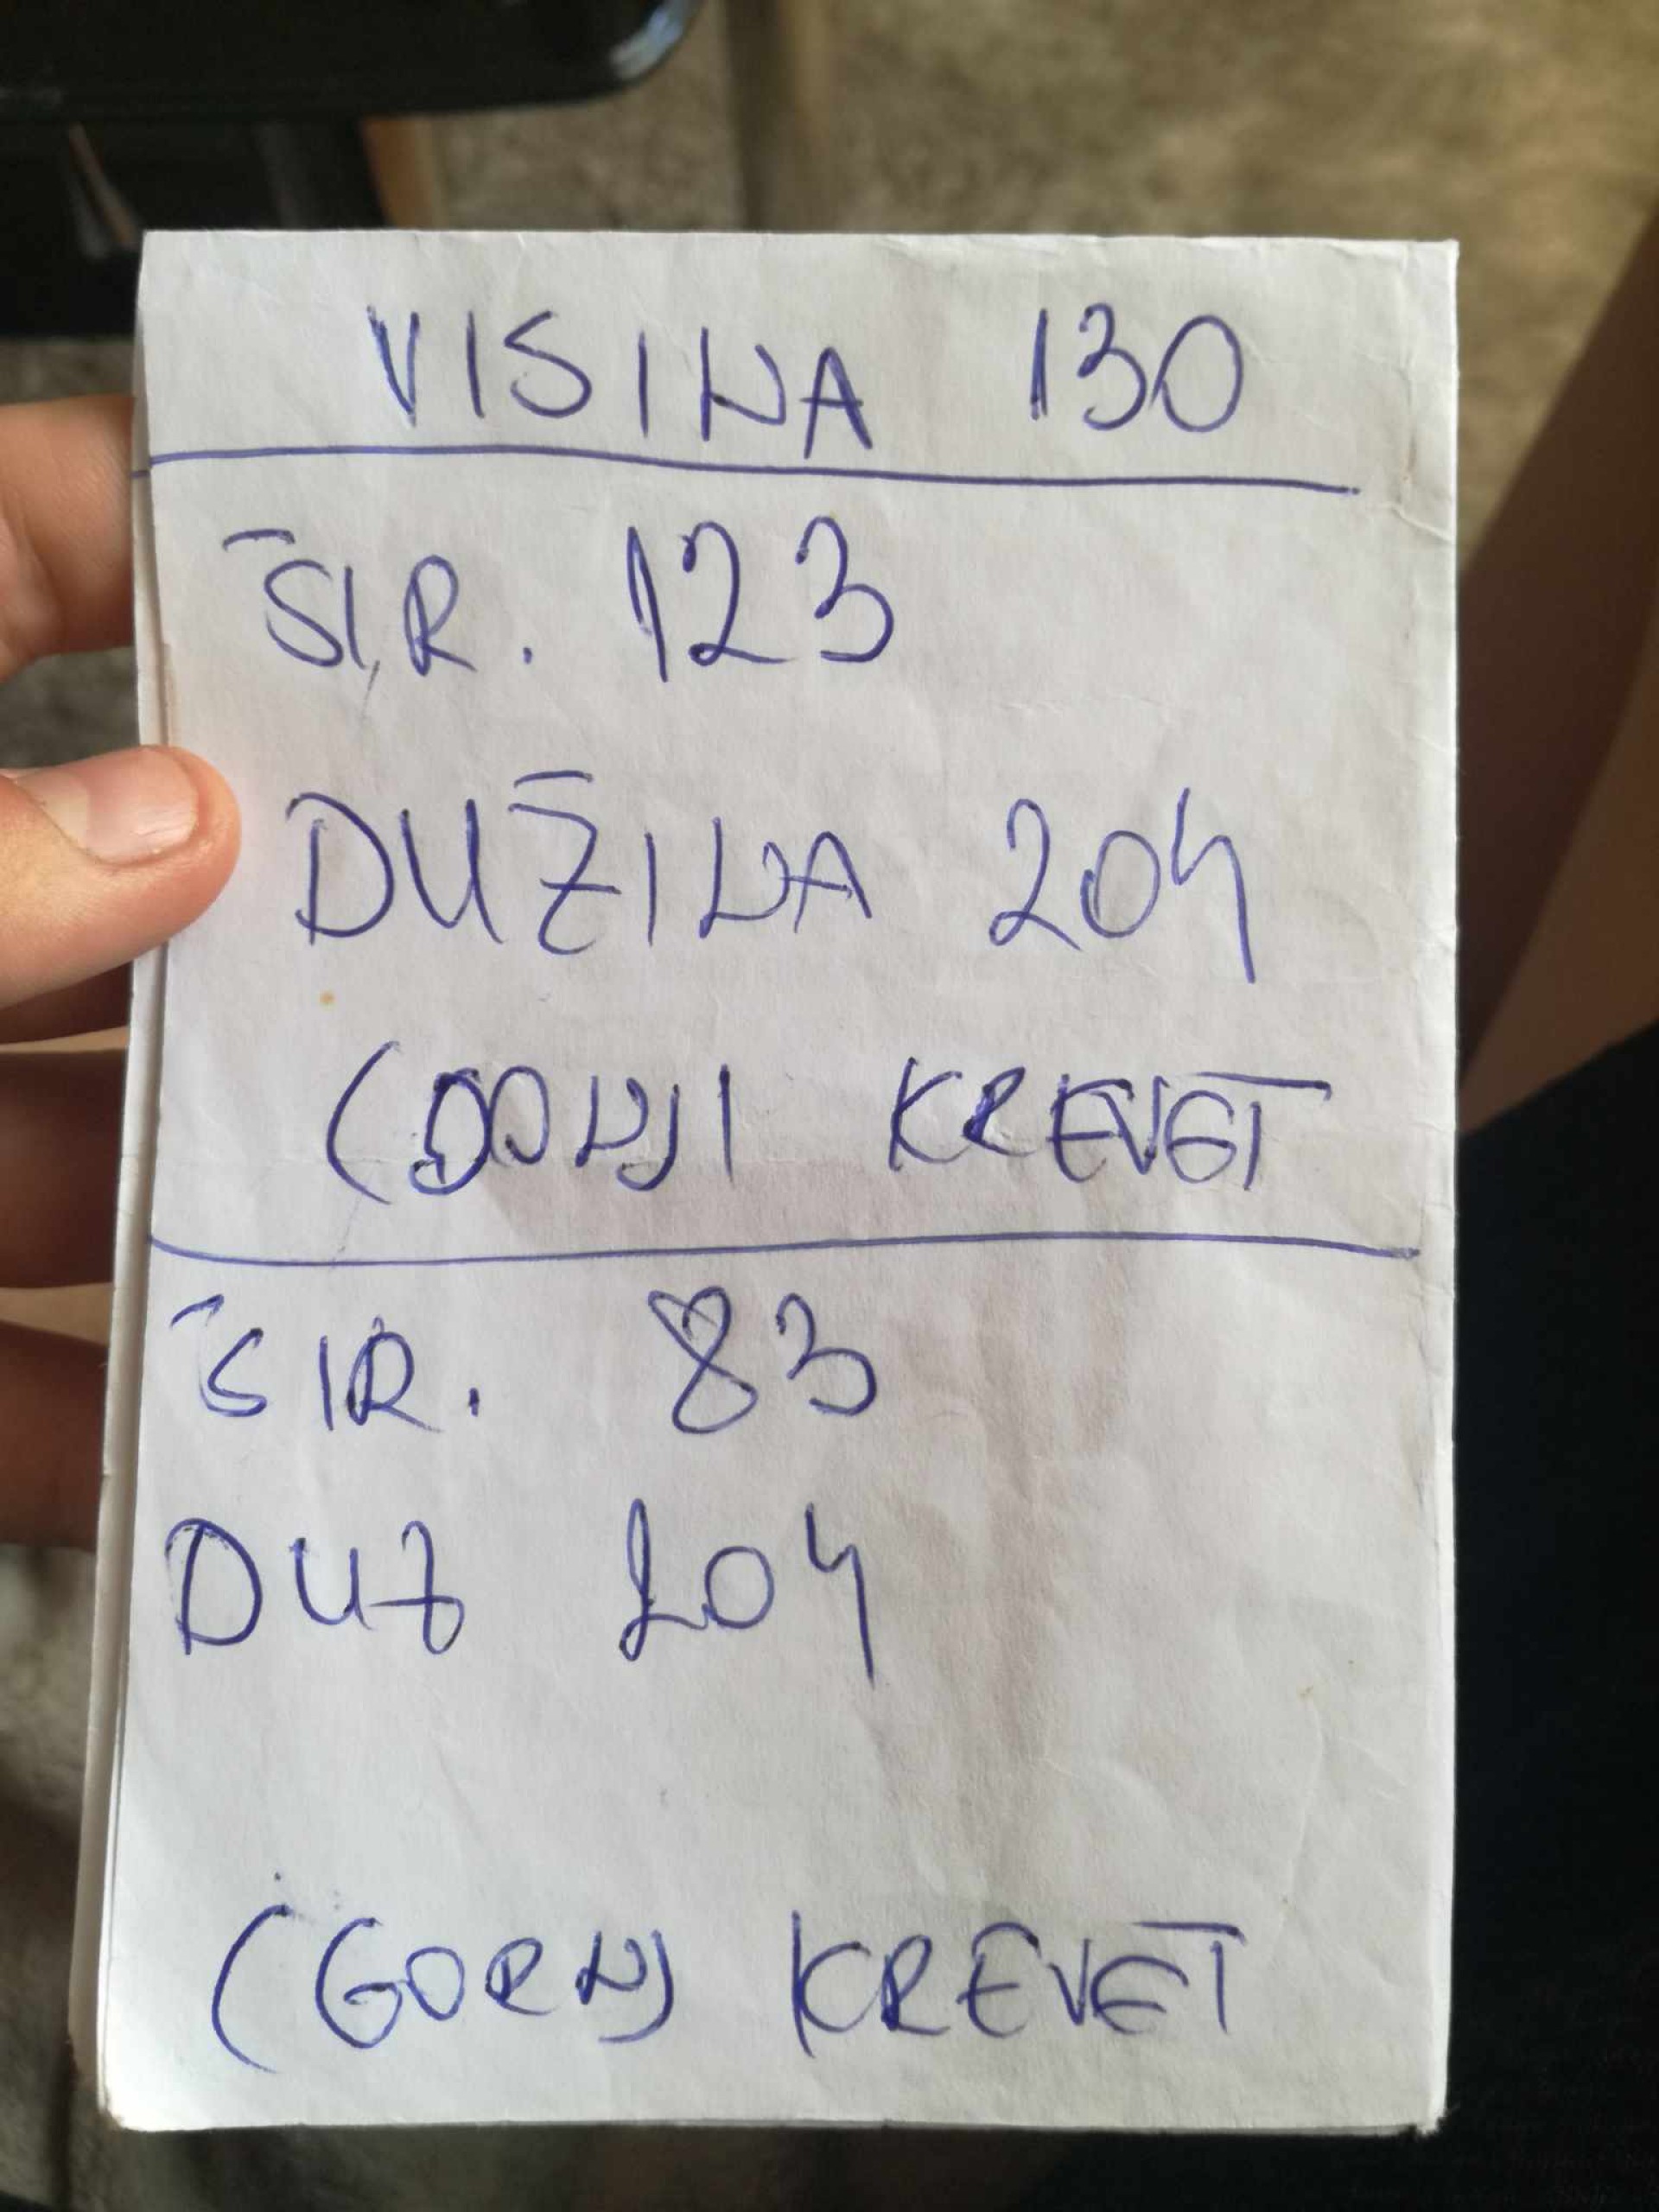 VISINA 130
ŠIR. 123
DUŽINA 204
(DONJI KREVET
ŠIR. 83
DUŽ 204
(GORNJ KREVET